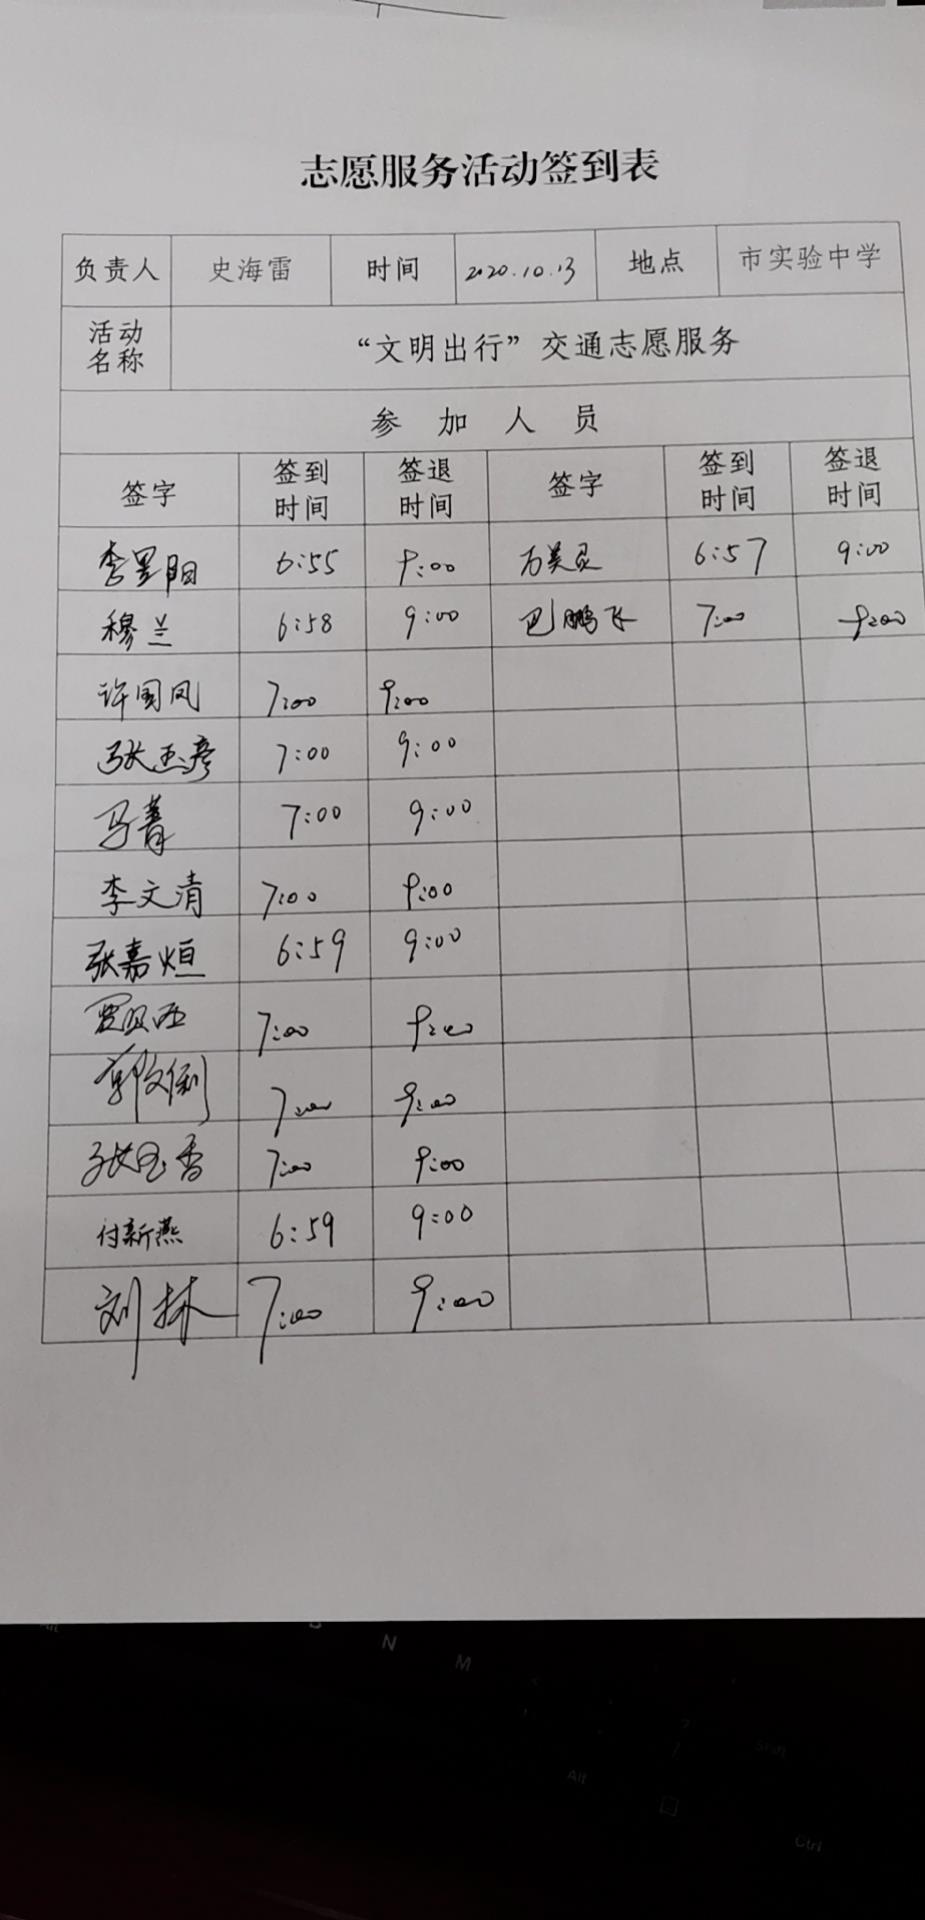 志愿服务活动签到表
负责人 史海雷 时间 2020.10.13 地点 市实验中学
活动名称 “文明出行”交通志愿服务
参加人员
签字 签到时间 签退时间 签字 签到时间 签退时间
李昱阳 6:55 9:00 6:57 9:00
穆兰 6:58 9:00 巴鹏飞 7:00 9:00
许国凤 7:00 9:00
张玉彦 7:00 9:00
马菁 7:00 9:00
李文清 7:00 9:00
张嘉烜 6:59 9:00
7:00 9:00
郭文俐 7:00 9:00
张玉香 7:00 9:00
付新燕 6:59 9:00
刘林 7:00 9:00
N
M
Alt
Shift
Ctrl